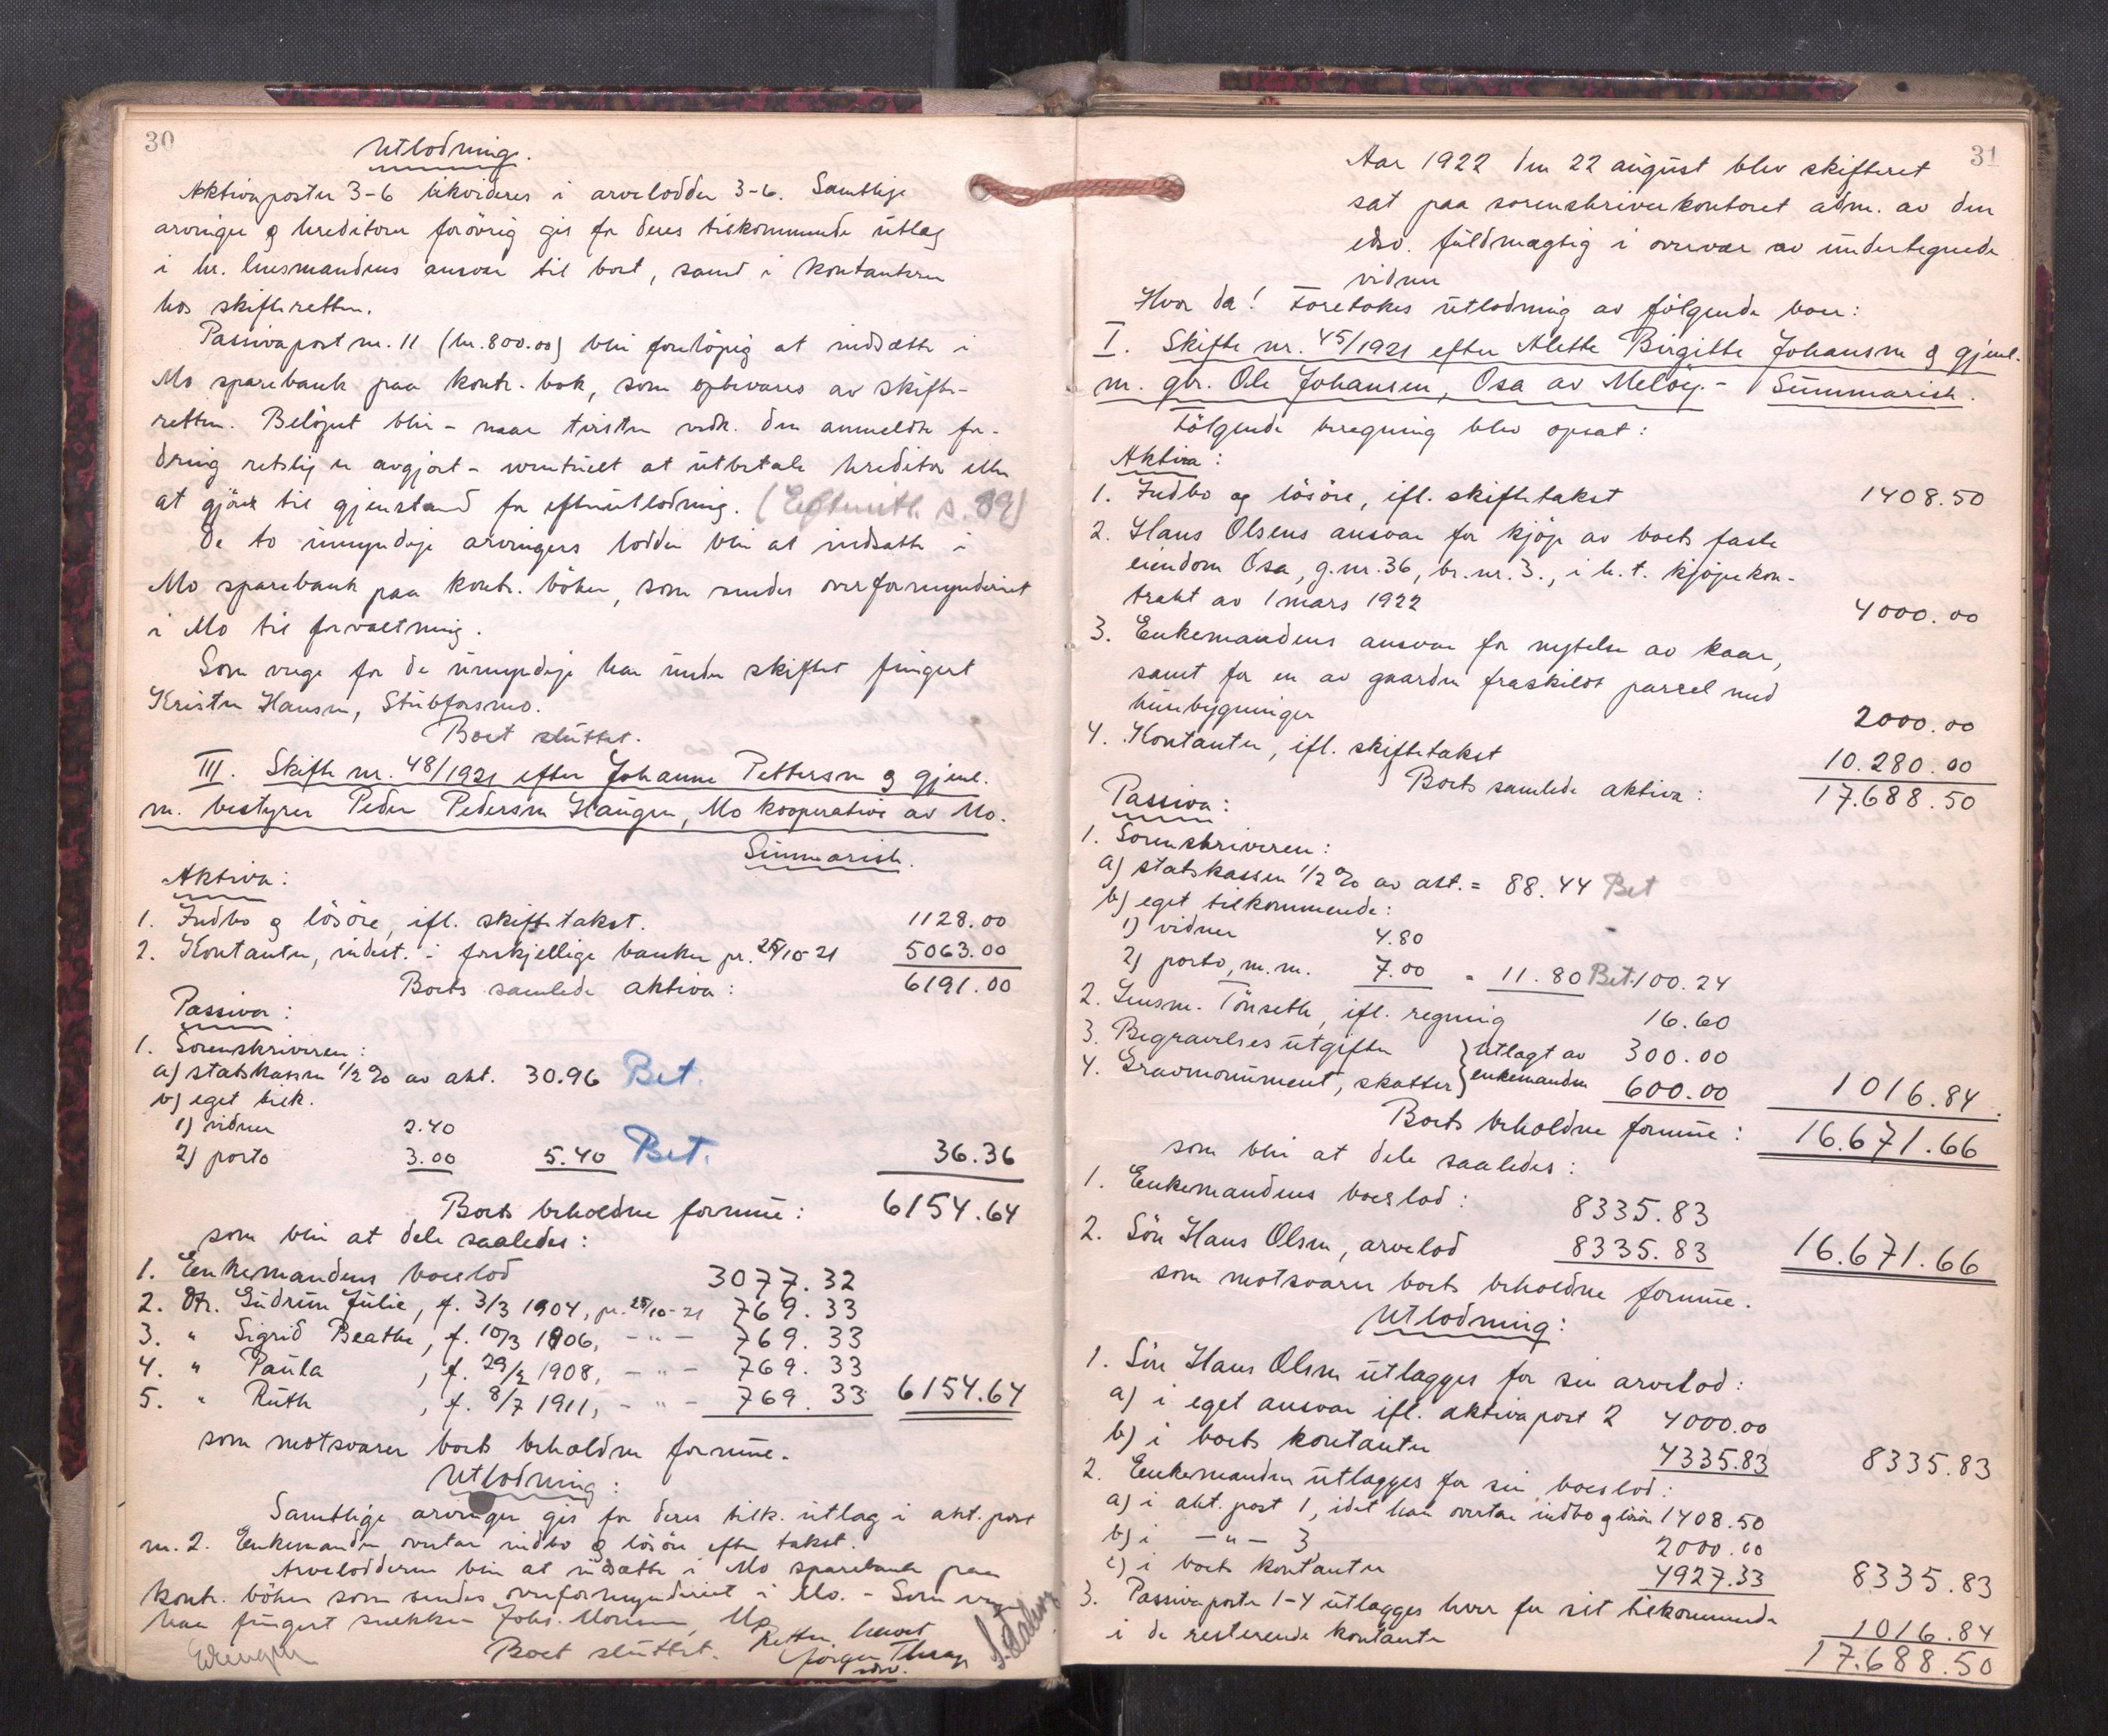 30
Utlodning.
Aktivaposter 3-6 likvideres i arvelodder 3-6. Samtlige
arvinger og kreditorer forövrig gis for deres tilkommende utlæg
i hr. lensmandens ansvar til boet, samt i kontanterne
hos skifteretten.
Passivapost nr. 11 (kr. 800.00) blir foreløpig at indsætte i
Mo sparebank paa kontr. bok, som opbevares av skifte-
retten. Beløpet blir - naar tvisten vedk. den anmeldte for-
dring retslig er avgjort - eventuelt at utbetale kreditor eller
at gjøre til gjenstand for efterutlodning. (Efterutl. s. 89)
De to umyndige arvingers lodder blir at indsætte i
Mo sparebank paa kontr. böker, som sendes overformynderiet
i Mo til forvaltning.
Som verge for de umyndige har under skiftet fungert
Kristen Hansen, Stubforsmo.
Boet sluttet.
III. Skifte nr. 48/1921 efter Johanne Pettersen og gjenl.
m. bestyrer Peder Pedersen Haugen, Mo kooperative av Mo.
Summarisk.
Aktiva:
1. Indbo og lösöre, ifl. skiftetakst. 1128.00
2. Kontanter, indest. i forskjellige banker pr. 25/10-21 5063.00
Boets samlede aktiva: 6191.00
Passiva:
1. Sorenskriveren:
a) statskassen 1/2 % av akt. 30.96 Bet.
b) eget tilk.
1) vidner 2.40
2) porto 3.00 5.40 Bet. 36.36
Boets beholdne formue: 6154.64
som blir at dele saaledes:
1. Enkemandens boeslod 3077.32
2. Dtr. Gudrun Julie, f. 3/3 1904, pr. 25/10-21 769.33
3. " Sigrid Beathe, f. 10/3 1906, - " - 769.33
4. " Paula, f. 29/2 1908, - " - 769.33
5. " Ruth, f. 8/7 1911, - " - 769.33 6154.64
som motsvarer boets beholdne formue.
Utlodning:
Samtlige arvinger gis for deres tilk. utlag i akt. post
nr. 2. Enkemanden overtar indbo og lösöre efter takst.
Arvelodderne blir at indsætte i Mo sparebank paa
kontr. böker som sendes overformynderiet i Mo. - Som verge
har fungert snekker Johs. Monsen, Mo.
Boet sluttet. Retten hævet
Jörgen
edsv.
31
Aar 1922 den 22 august blev skifteret
sat paa sorenskriverkontoret adm. av den
edsv. fuldmægtig i overvær av undertegnede
vidner
Hvor da! Foretokes utlodning av fölgende boer:
I. Skifte nr. 45/1921 efter Alette Birgitte Johansen og gjenl.
m. gbr. Ole Johansen, Osa av Meløy. - Summarisk.
Fölgende beregning blev opsat:
Aktiva:
1. Indbo og lösöre, ifl. skiftetakst 1408.50
2. Hans Olsens ansvar for kjöp av boets faste
eiendom Osa, g.nr. 36, br.nr. 3., i h. t. kjøpekon-
trakt av 1 mars 1922 4000.00
3. Enkemandens ansvar for nytelse av kaar,
samt for en av gaarden fraskilt parsel med
husbygninger 2000.00
4. Kontanter, ifl. skiftetakst 10.280.00
Boets samlede aktiva: 17.688.50
Passiva:
1. Sorenskriveren:
a) statskassen 1/2 % av akt. = 88.44 Bet
b) eget tilkommende:
1) vidner 4.80
2) porto, m.m. 7.00 = 11.80 Bet. 100.24
2. Lensm. Tönseth, ifl. regning 16.60
3. Begravelsesutgifter } utlagt av 300.00
4. Gravmonument, skatter } enkemanden 600.00 1016.84
Boets beholdne formue: 16.671.66
som blir at dele saaledes:
1. Enkemandens boeslod: 8335.83
2. Sön Hans Olsen, arvelod 8335.83 16.671.66
som motsvarer boets beholdne formue.
Utlodning:
1. Sön Hans Olsen utlægges for sin arvelod:
a) i eget ansvar ifl. aktivapost 2 4000.00
b) i boets kontanter 4335.83 8335.83
2. Enkemanden utlægges for sin boeslod:
a) i akt. post 1, idet han overtar indbo og lösöre 1408.50
b) i - " - 3, 2000.00
c) i boets kontanter 4927.33 8335.83
3. Passivaposter 1-4 utlægges hver for sit tilkommende
i de resterende kontanter 1016.84
17.688.50